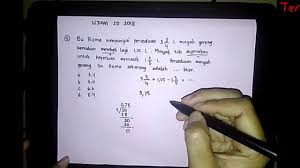 Ter
UJIAN SD 2018
Bu Rama mempunyai persediaan 5 3/4 L minyak goreng
kemudian membeli lagi 1,25 L. Minyak tsb digunakan
untuk keperluan memasak 1 3/5 L. Persediaan minyak
goreng Bu Rama sekarang adalah ... liter.
a. 3,4
b.
c.
d. 5,4
5 3/4 + 1,25 - 1 3/5 =
5,75
2,75
20
20
0